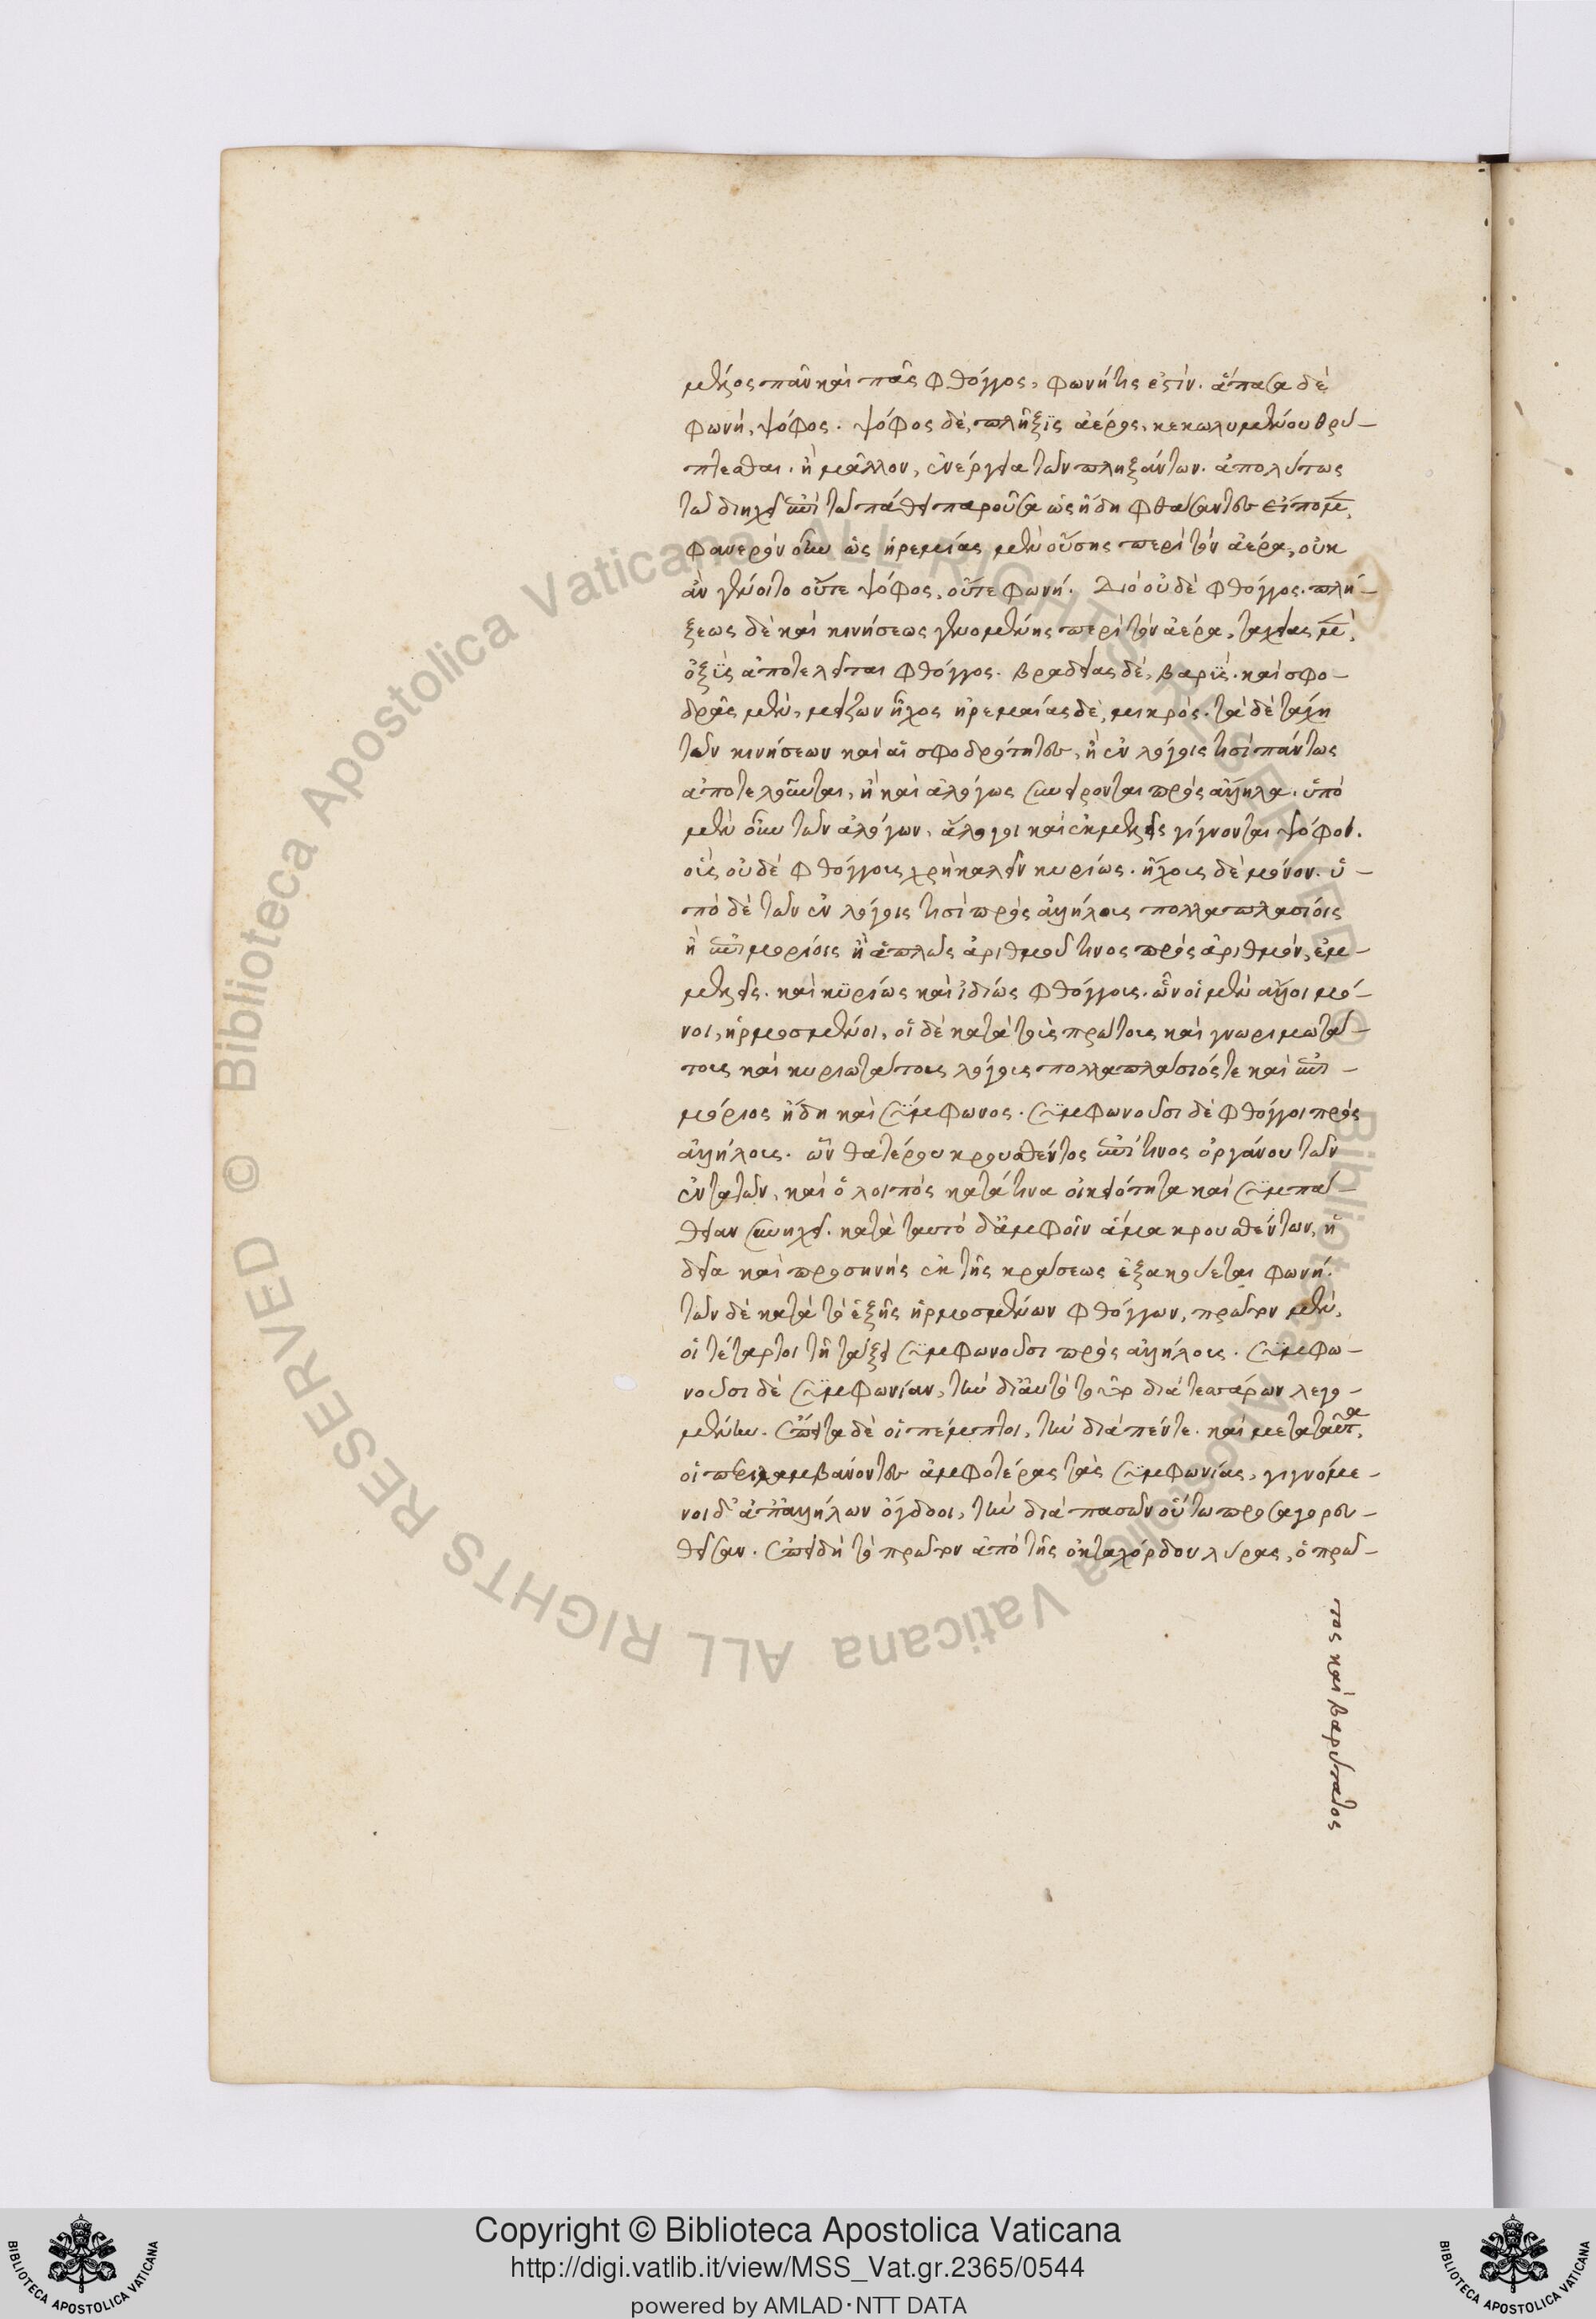 μελὴς πᾶν καὶ πᾶς φθόγγος, φωνή τις ἐστίν. ἅπασα δὲ
φωνή, ψόφος. ψόφος δὲ, πλῆξις ἀέρος, κεκωλυμένου θρύ-
πτεσθαι. ἢ μᾶλλον, ἐνέργεια τῶν πληξάντων. ἀπολύτως
τῶ διηχεῖ ἐπὶ τῶ πάθει παροῦσα ὡς ἤδη φθάσαντες εἴπομεν,
φανερὸν οὖν ὡς ἠρεμίας μὲν οὔσης περὶ τὸν ἀέρα, οὐκ
ἂν γένοιτο οὔτε ψόφος, οὔτε φωνή. Διὸ οὐδὲ φθόγγος. πλή-
ξεως δὲ καὶ κινήσεως γενομένης περὶ τὸν ἀέρα, ταχείας μὲν,
ὀξὺς ἀποτελεῖται φθόγγος. βραδείας δὲ, βαρύς. καὶ σφο-
δρᾶς μὲν, μείζων ἦχος ἠρεμαίας δὲ, μικρός. τὰ δὲ τάχη
τῶν κινήσεων καὶ αἱ σφοδρότητες, ἢ ἐν λόγοις τισὶ πάντως
ἀποτελοῦνται, ἢ καὶ ἀλόγως συνείρονται πρὸς ἄλληλα. ὑπὸ
μὲν οὖν τῶν ἀλόγων, ἄλογοι καὶ ἐκμελεῖς γίγνονται ψόφοι.
οἷς οὐδὲ φθόγγοις χρὴ καλεῖν κυρίως. ἤχοις δὲ μόνον. ὑ-
πὸ δὲ τῶν ἐν λόγοις τισὶ πρὸς ἀλλήλους πολλαπλασίοις
ἢ ἐπιμορίοις ἢ ἁπλῶς ἀριθμοῦ τινος πρὸς ἀριθμόν, ἐμ-
μελεῖς. καὶ κυρίως καὶ ἰδίως φθόγγους. ὧν οἱ μὲν ἄλλοι μό-
νοι, ἡρμοσμένοι, οἱ δὲ κατὰ τοὺς πρώτους καὶ γνωριμωτά-
τους καὶ κυριωτάτους λόγους πολλαπλάσιός τε καὶ ἐπι-
μόριος ἤδη καὶ σύμφωνος. συμφωνοῦσι δὲ φθόγγοι πρὸς
ἀλλήλους. ὧν θατέρου κρουσθέντος ἐπί τινος ὀργάνου τῶν
ἐντατῶν, καὶ ὁ λοιπὸς κατά τινα οἰκειότητα καὶ συμπά-
θειαν συνηχεῖ. κατὰ ταυτὸ δ' ἀμφοῖν ἅμα κρουσθέντων, ἡ
δεῖα καὶ προσηνὴς ἐκ τῆς κράσεως ἐξακούεται φωνή.
τῶν δὲ κατὰ τὸ ἑξῆς ἡρμοσμένων φθόγγων, πρῶτον μὲν,
οἱ τέταρτοι τῇ τάξει συμφωνοῦσι πρὸς ἀλλήλους. συμφω-
νοῦσι δὲ συμφωνίαν, τὴν δι' αὐτὸ τοῦτο διὰ τεσσάρων λεγο-
μένην. ἔπειτα δὲ οἱ πέμπτοι, τὴν διὰ πέντε. καὶ μετὰ ταῦτα,
οἱ περιλαμβάνοντες ἀμφοτέρας τὰς συμφωνίας, γιγνόμε-
νοι δ' ἀπ' ἀλλήλων ὄγδοοι, τὴν διὰ πασῶν οὕτω προσαγορευ-
θεῖσαν. ἐπειδὴ τὸ πρῶτον ἀπὸ τῆς ὀκταχόρδου λύρας, ὁ πρῶ-
τος καὶ βαρύτατος
Copyright © Biblioteca Apostolica Vaticana
http://digi.vatlib.it/view/MSS_Vat.gr.2365/0544
powered by AMLAD·NTT DATA